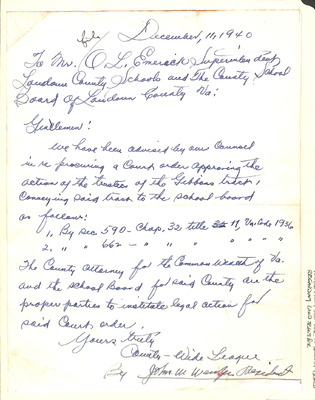 December, 11, 1940
To Mr. O. L. Emerick Superintendent
Loudoun County Schools and the County School
Board of Loudoun County Va:
Gentlemen:
We have been advised by our Counsel
in re procuring a Court order approving the
action of the trustees of the Gibbons tract,
conveying said tract to the school board
as follows:
1, By sec 590 - Chap. 32 title 11, Va. Code 1936
2, " " 662 - " " " " " "
The County Attorney for the Common Wealth of Va.
and the school Board for said County are the
proper parties to institute legal action for
said Court order.
Yours truly
County-Wide League
By John W. President